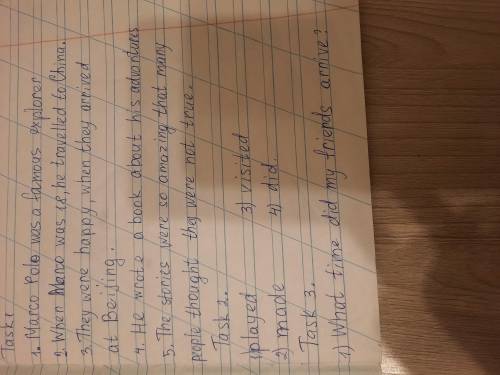 Task1
1. Marco Polo was a famous explorer
2. When Marco was 18, he travelled to China.
3. They were happy, when they arrived
at Beijing.
4. He wrote a book about his adventures
5. The stories were so amazing that many
people thought they were not true.
Task 2.
1) played 3) visited
2) made 4) did.
Task 3.
1) What time did my friends arrive?